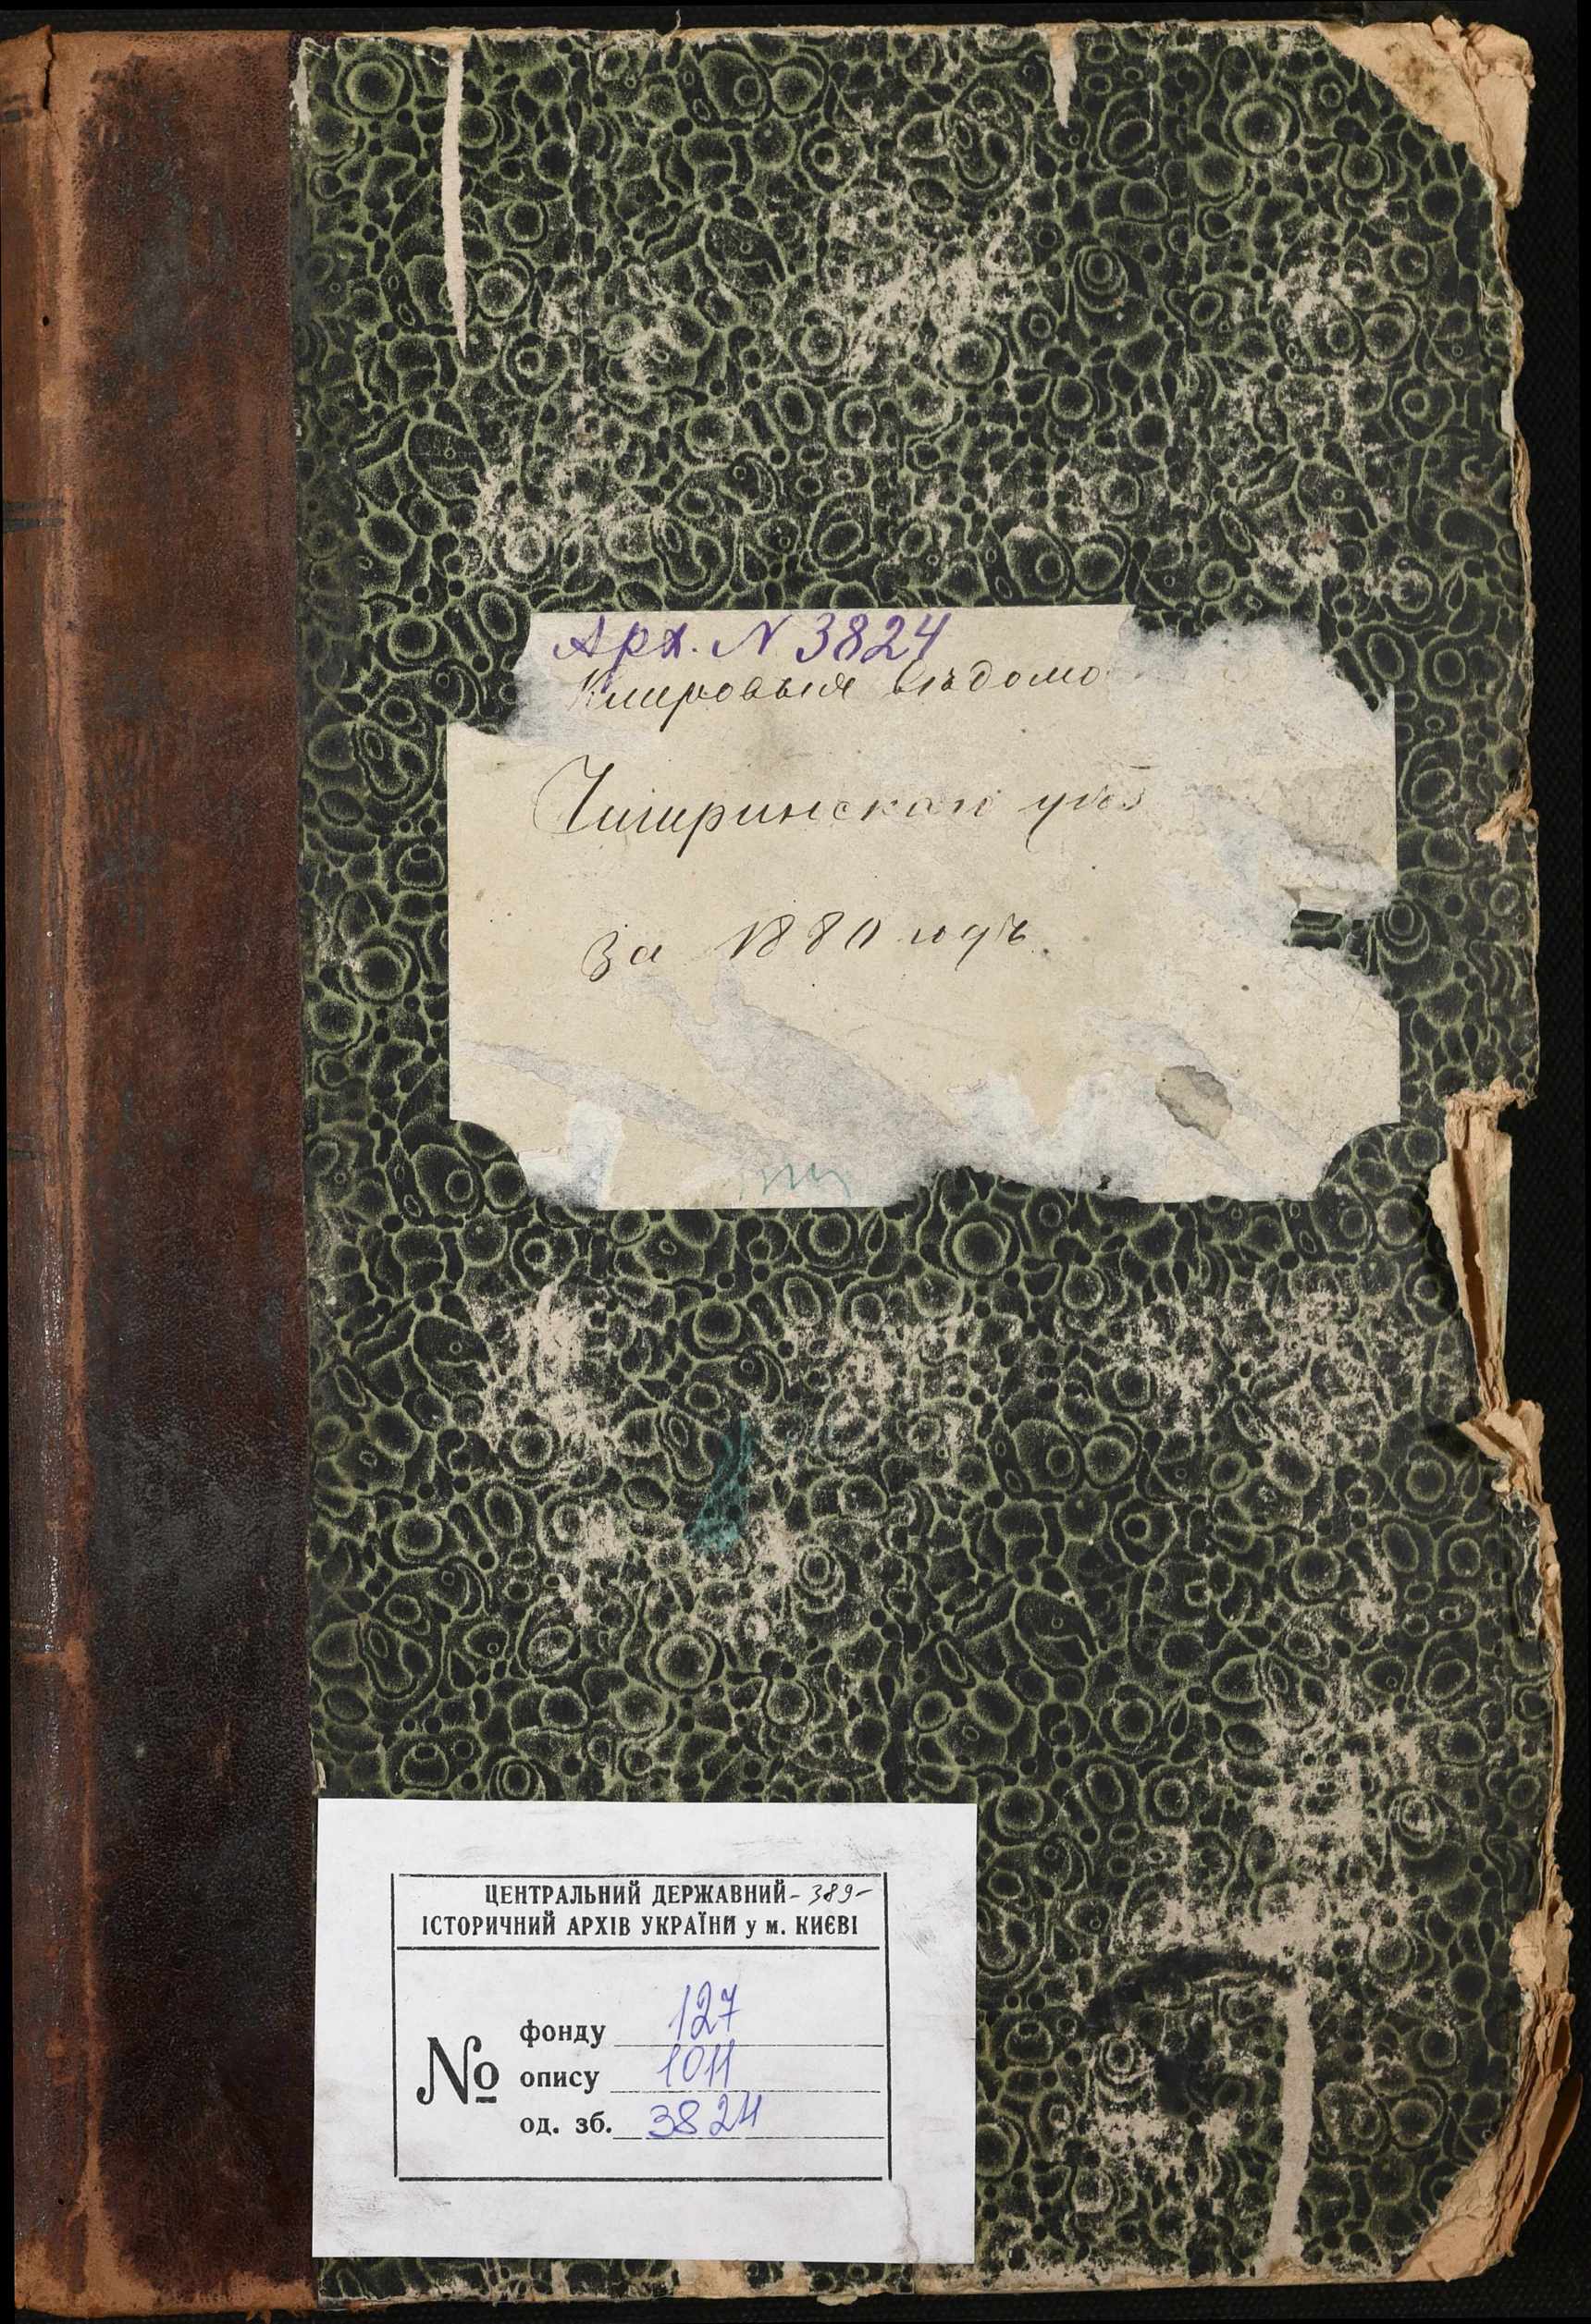 Арх. N 3824
Клировыя вѣдомо
Чигиринскаго уѣз
за 1880 годъ.
ЦЕНТРАЛЬНИЙ ДЕРЖАВНИЙ -389-
ІСТОРИЧНИЙ АРХІВ УКРАЇНИ у м. КИЄВІ
№
фонду 127
опису 1011
од. зб. 3824